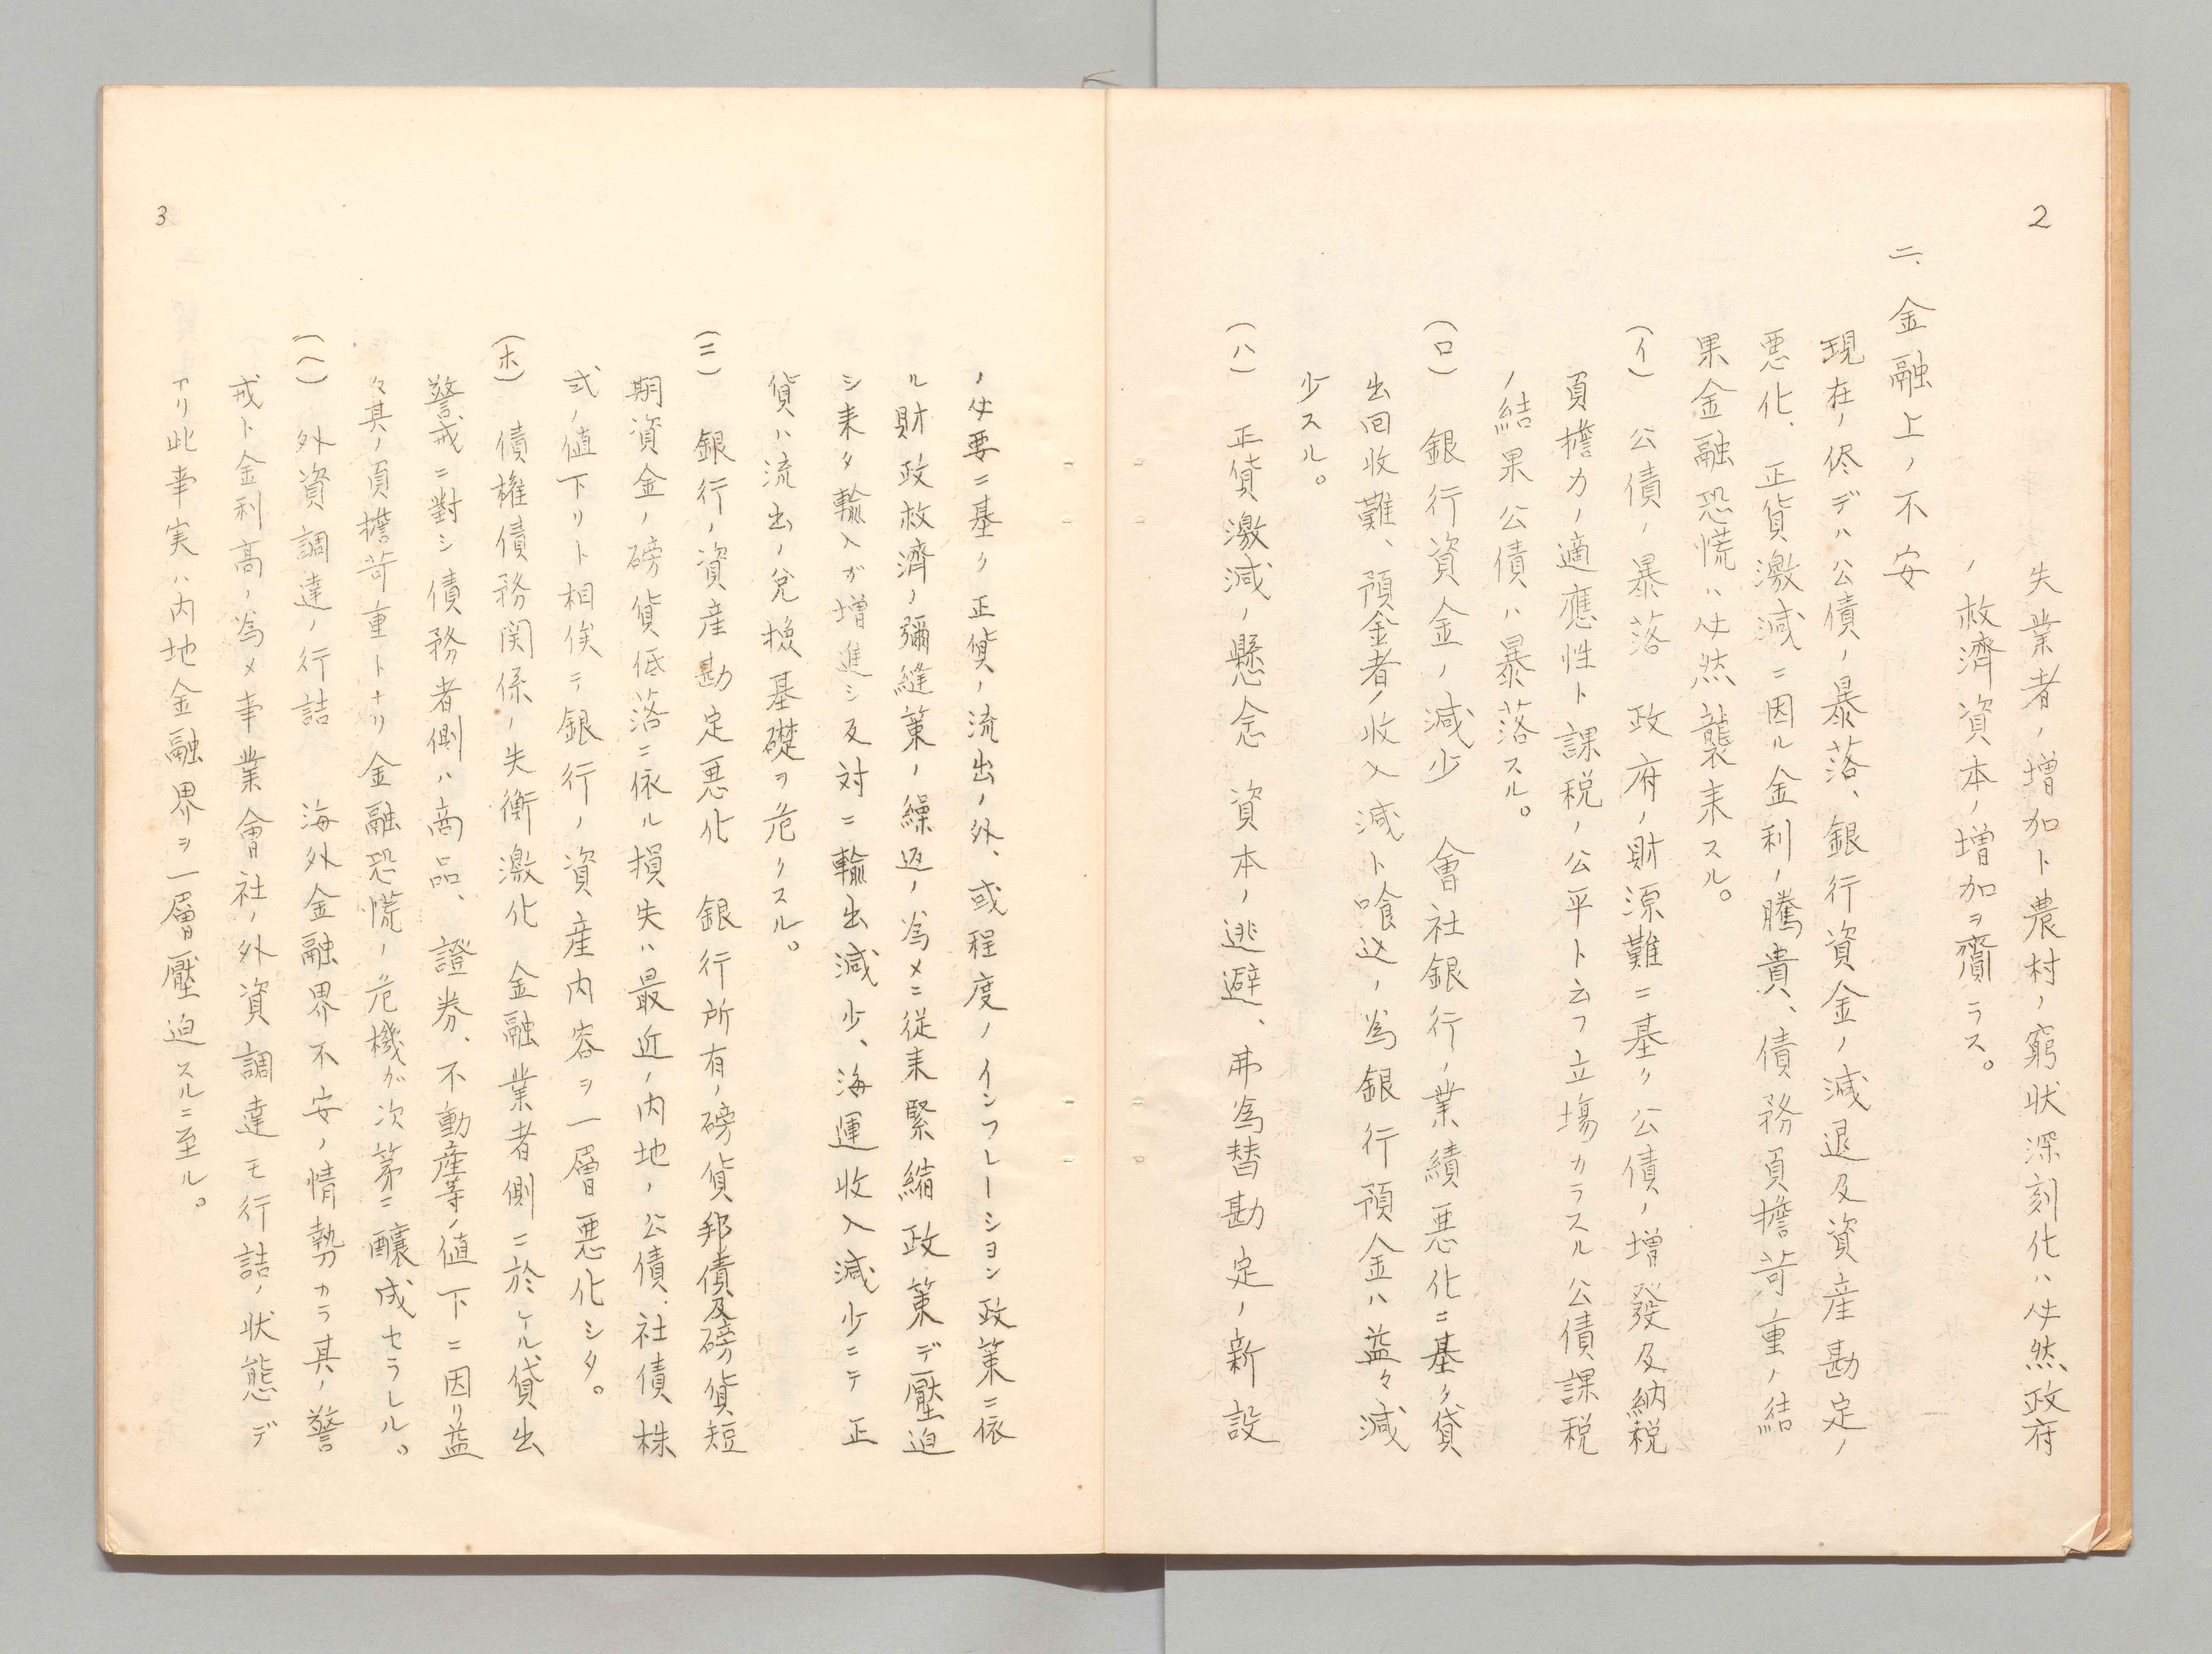 2
失業者ノ増加ト農村ノ窮状深刻化ハ必然政府
ノ救濟資本ノ増加ヲ齎ラス。
二、金融上ノ不安
現在ノ侭デハ公債ノ暴落、銀行資金ノ減退及資産勘定ノ
悪化、正貨激減ニ因ル金利ノ騰貴、債務負擔苛重ノ結
果金融恐慌ハ必然襲来スル。
(イ) 公債ノ暴落 政府ノ財源難ニ基ク公債ノ増發及納税
負擔力ノ適應性ト課税ノ公平ト云フ立場カラスル公債課税
ノ結果公債ハ暴落スル。
(ロ) 銀行資金ノ減少 會社銀行ノ業績悪化ニ基ク貸
出回收難、預金者ノ收入減ト喰込ノ為銀行預金ハ益々減
少スル。
(ハ) 正貨激減ノ懸念 資本ノ逃避、弗為替勘定ノ新設
3
ノ必要ニ基ク正貨ノ流出ノ外、或程度ノインフレーション政策ニ依
ル財政救濟ノ彌縫策ノ繰返ノ為メニ従来緊縮政策デ壓迫
シ来タ輸入ガ増進シ反対ニ輸出減少、海運收入減少ニテ正
貨ハ流出ノ兌換基礎ヲ危クスル。
(ニ) 銀行ノ資産勘定悪化 銀行所有ノ磅貨邦債及磅貨短
期資金ノ磅貨低落ニ依ル損失ハ最近ノ内地ノ公債、社債株
式ノ値下リト相俟テ銀行ノ資産内容ヲ一層悪化シタ。
(ホ) 債権債務関係ノ失衡激化 金融業者側ニ於ケル貸出
警戒ニ對シ債務者側ハ商品、證券、不動産等ノ値下ニ因リ益
々其ノ負擔苛重トナリ金融恐慌ノ危機ガ次第ニ釀成セラレル。
(ヘ) 外資調達ノ行詰 海外金融界不安ノ情勢カラ其ノ警
戒ト金利高ノ為メ事業會社ノ外資調達モ行詰ノ状態デ
アリ此事実ハ内地金融界ヲ一層壓迫スルニ至ル。